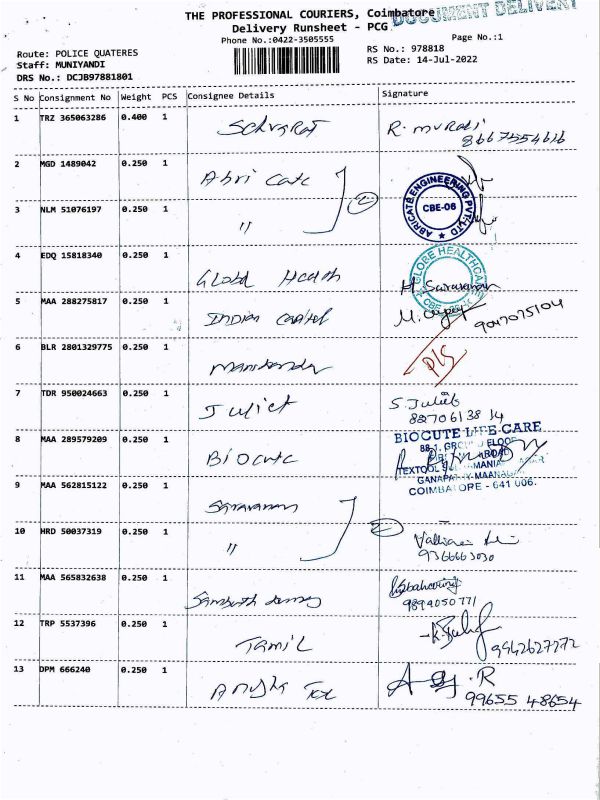 THE PROFESSIONAL COURIERS, Coimbatore
DOCUMENT DELIVERY
Delivery Runsheet - PCG
Phone No.:0422-3505555
Page No.:1
Route: POLICE QUATERES
RS No.: 978818
Staff: MUNIYANDI
RS Date: 14-Jul-2022
DRS No.: DCJB97881801
S No Consignment No Weight PCS Consignee Details Signature
1 TRZ 365063286 0.400 1 R. Murali
8667554616
2 MGD 1489042 0.250 1 Abri Cate
3 NLM 51076197 0.250 1 "
ABRICATE ENGINEERING PVT. LTD
CBE-06
4 EDQ 15818340 0.250 1 Global Health H. Saravanan
GLOBE HEALTHCARE
5 MAA 288275817 0.250 1 Indian Capital
9047075104
6 BLR 2801329775 0.250 1
7 TDR 950024663 0.250 1 Juliet S. Julieb
8270613814
8 MAA 289579209 0.250 1 Biocute
BIOCUTE LIFE CARE
COIMBATORE - 641 006.
9 MAA 562815122 0.250 1 Saravanan
10 HRD 50037319 0.250 1 "
9366663030
11 MAA 565832638 0.250 1
9894050771
12 TRP 5537396 0.250 1 Tamil
9942627272
13 DPM 666240 0.250 1
99655 48654